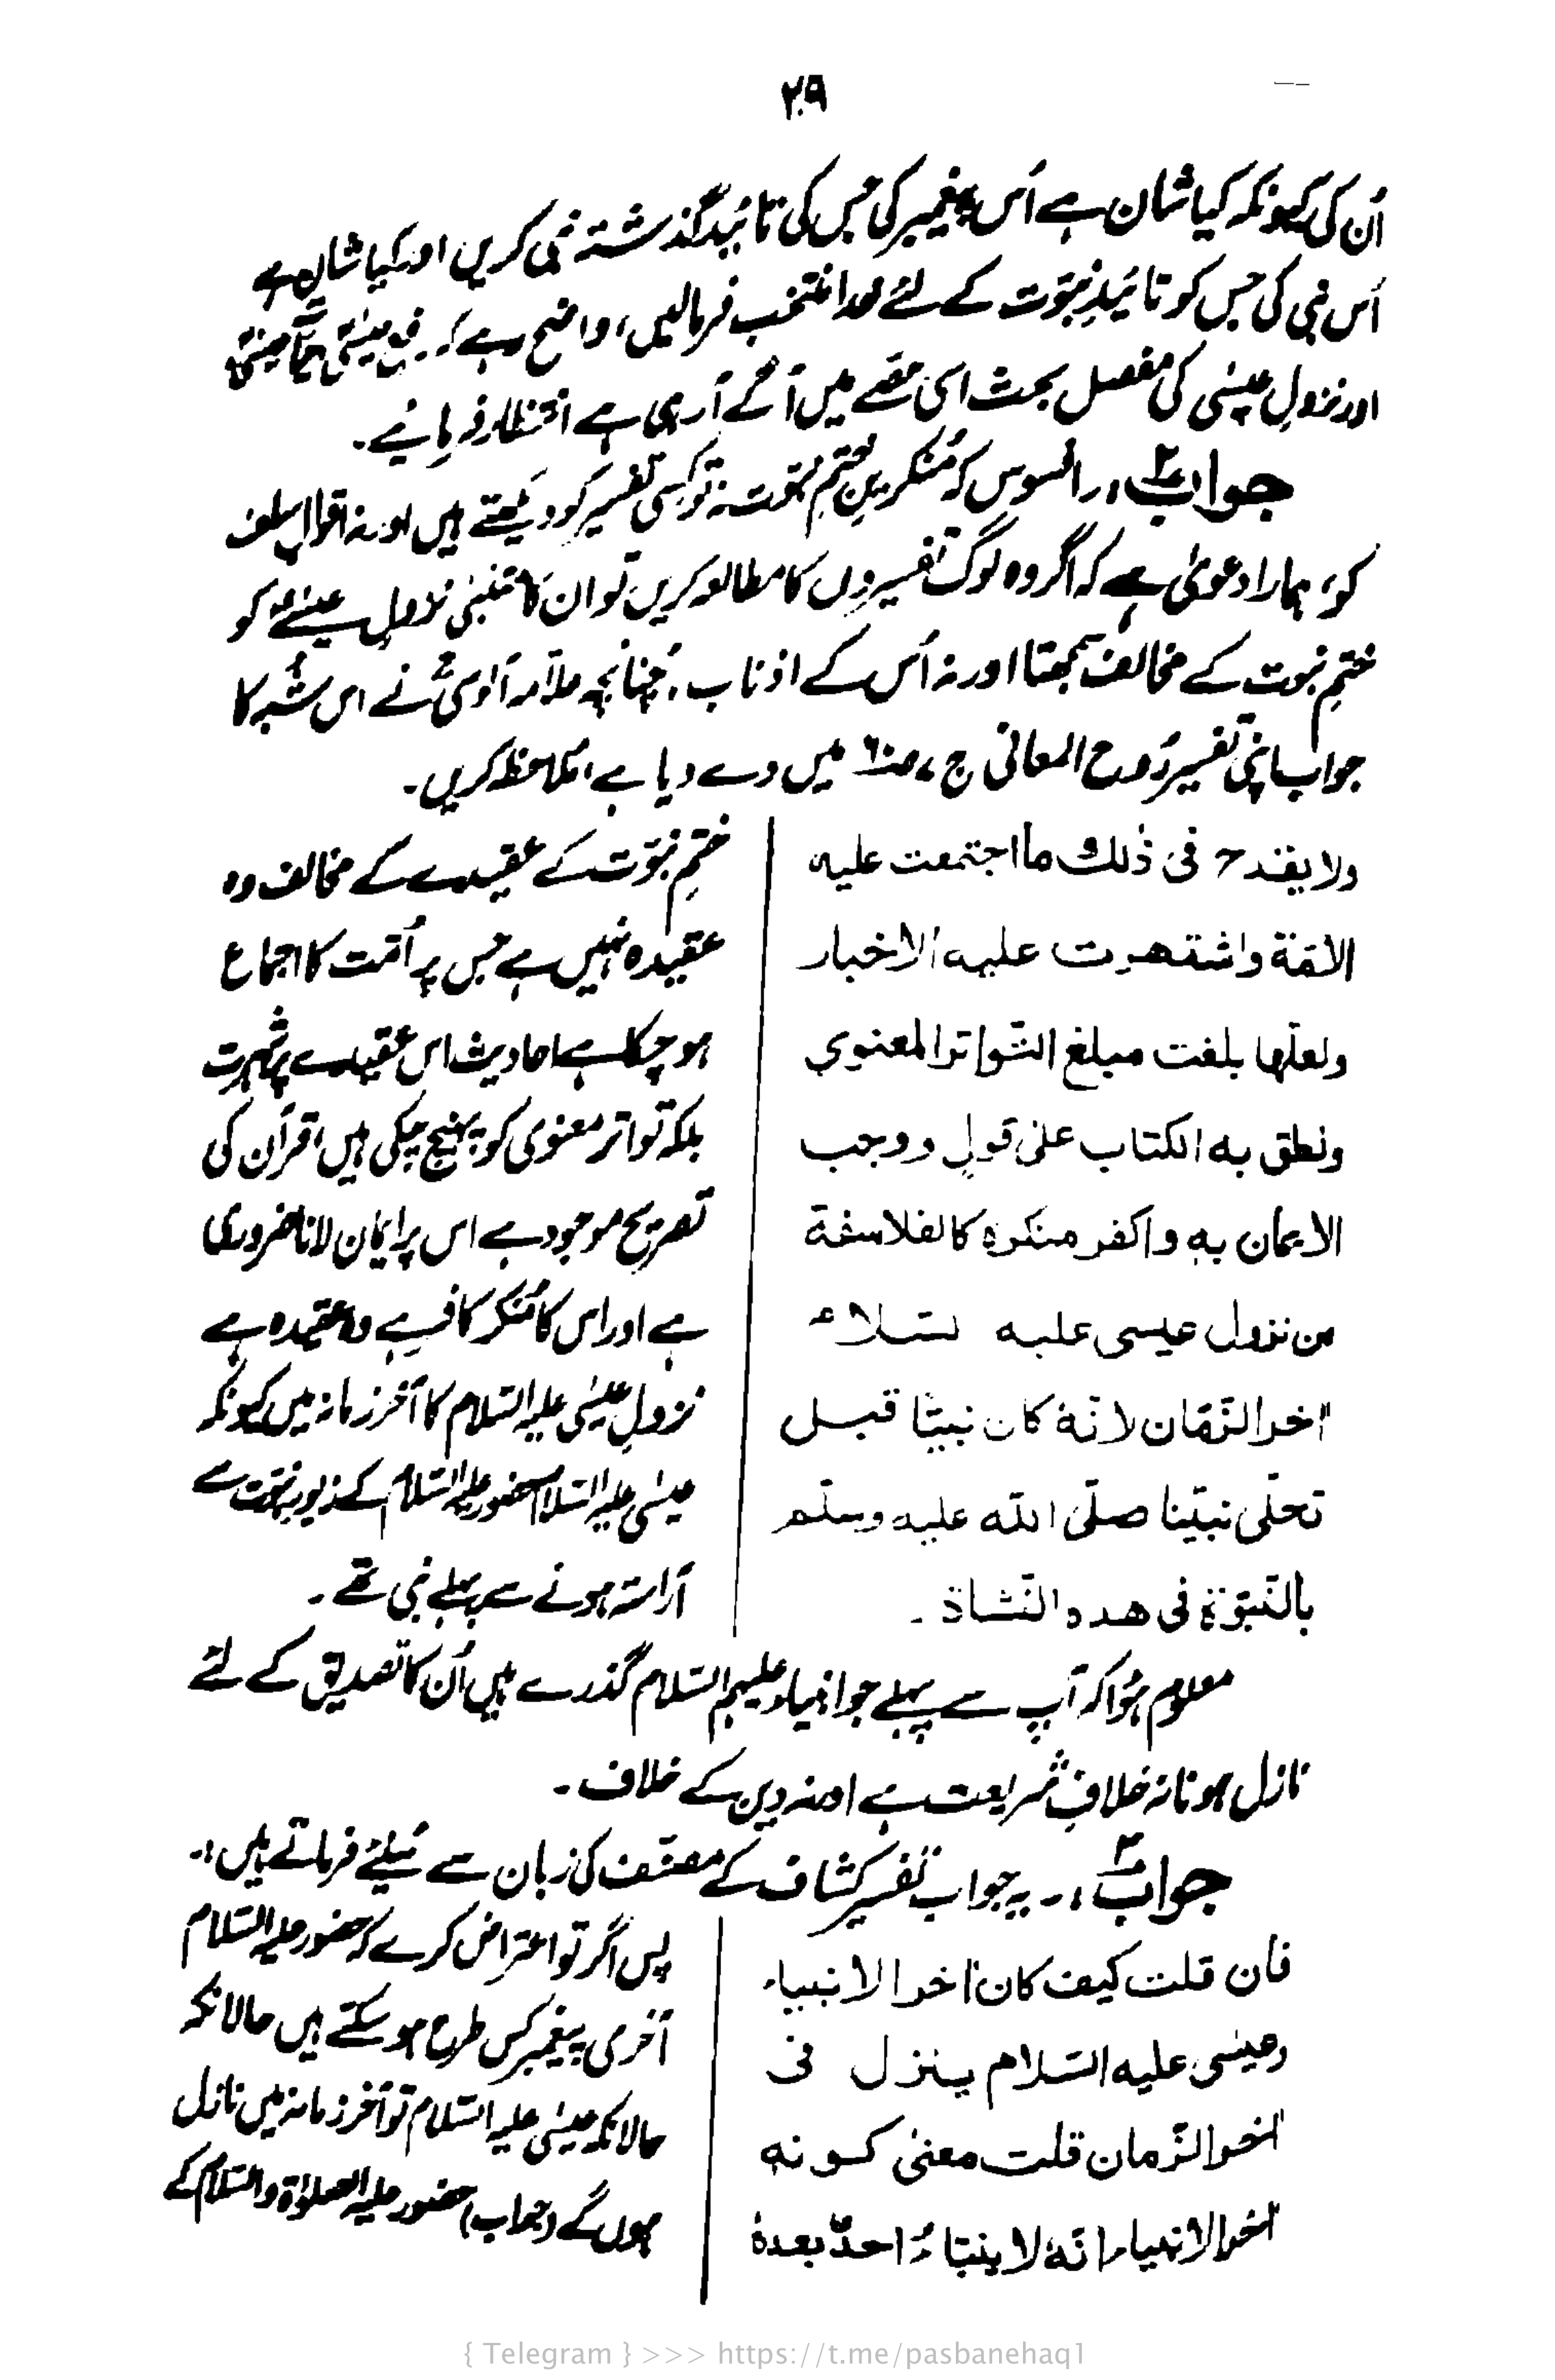 ۲۰۹
اُن کی کیونکہ کیا شان ہے اُس پیغمبر کی جس کی تائید گذشتہ نبی کریں اور کیا شان ہے
اُس نبی کی جس کو تائیدِ نبوّت کے لئے خدا منتخب فرمالیں، واضح رہے کہ رفعِ عیسٰی
اور نزولِ عیسٰی کی مفصل بحث اسی حصّے میں آگے آرہی ہے انتظار فرمائیے۔
جواب ۲:۔ افسوس کہ مُنکرینِ ختمِ نبوّت نہ تو کسی تفسیر کو دیکھتے ہیں اور نہ اقوالِ سلف
کو، ہمارا دعویٰ ہے کہ اگر وہ لوگ تفسیروں کا مطالعہ کریں تو ان کا متنبّی نزولِ عیسٰےؑ کو
ختمِ نبوت کے مخالف سمجھتا اور نہ اُس کے اذناب، چُنانچہ علّامہ آلوسیؒ نے اس شُبہ کا
جواب اپنی تفسیر رُوح المعانی ج ۷ میں دے دیا ہے، ملاحظہ کریں۔
ولا يقدح فی ذٰلك ما اجتمعت عليه
الامّة واشتهرت عليه الاخبار
ولعلّها بلغت مبلغ التّواتر المعنوي
ونطق به الكتاب علیٰ قولٍ ووجب
الايمان به واكفر منكره كالفلاسفة
من نزول عيسى عليه السّلام
اٰخر الزّمان لانّهٗ كان نبيّا قبل
تحلّى نبيّنا صلّى اللّه عليه وسلّم
بالنّبوّة فى هده النّشاة ۔
ختمِ نبوّت کے عقیدے کے مخالف وہ
عقیدہ نہیں ہے جس پر اُمّت کا اجماع
ہو چکا ہے احادیث اس عقیدے پر شہرت
بلکہ تواتر معنوی کو پہنچ چکی ہیں، قرآن کی
تصریح موجود ہے اس پر ایمان لانا ضروری
ہے اور اس کا مُنکر کافر ہے وہ عقیدہ ہے
نزولِ عیسٰی علیہ السّلام کا آخر زمانہ میں کیونکہ
عیسٰی علیہ السّلام حضور علیہ السّلام کے زیورِ نبوّت سے
آراستہ ہونے سے پہلے نبی تھے۔
معلوم ہُوا کہ آپ سے پہلے جو انبیاء علیہم السّلام گذرے ہیں اُن کا تصدیق کے لئے
نازل ہونا نہ خلافِ شریعت ہے اور نہ دین کے خلاف۔
جواب ۳:۔ یہ جواب تفسیر کشّاف کے مصنّف کی زبان سے سُنیئے فرماتے ہیں:۔
فان قلت كيف كان اٰخر الانبياء
وعيسٰى عليه السّلام ينزل فى
اٰخر الزّمان قلت معنىٰ كونه
اٰخر الانبياء انّهٗ لا ينبّاءُ احدٌ بعدهٗ
پس اگر تو اعتراض کرے کہ حضور علیہ السّلام
آخری پیغمبر کس طرح ہو سکتے ہیں حالانکہ
حالانکہ عیسٰی علیہ السّلام تو آخر زمانہ میں نازل
ہوں گے (جواب) حضور علیہ الصلوٰۃ والسّلام کے
{ Telegram } >>> https://t.me/pasbanehaq1